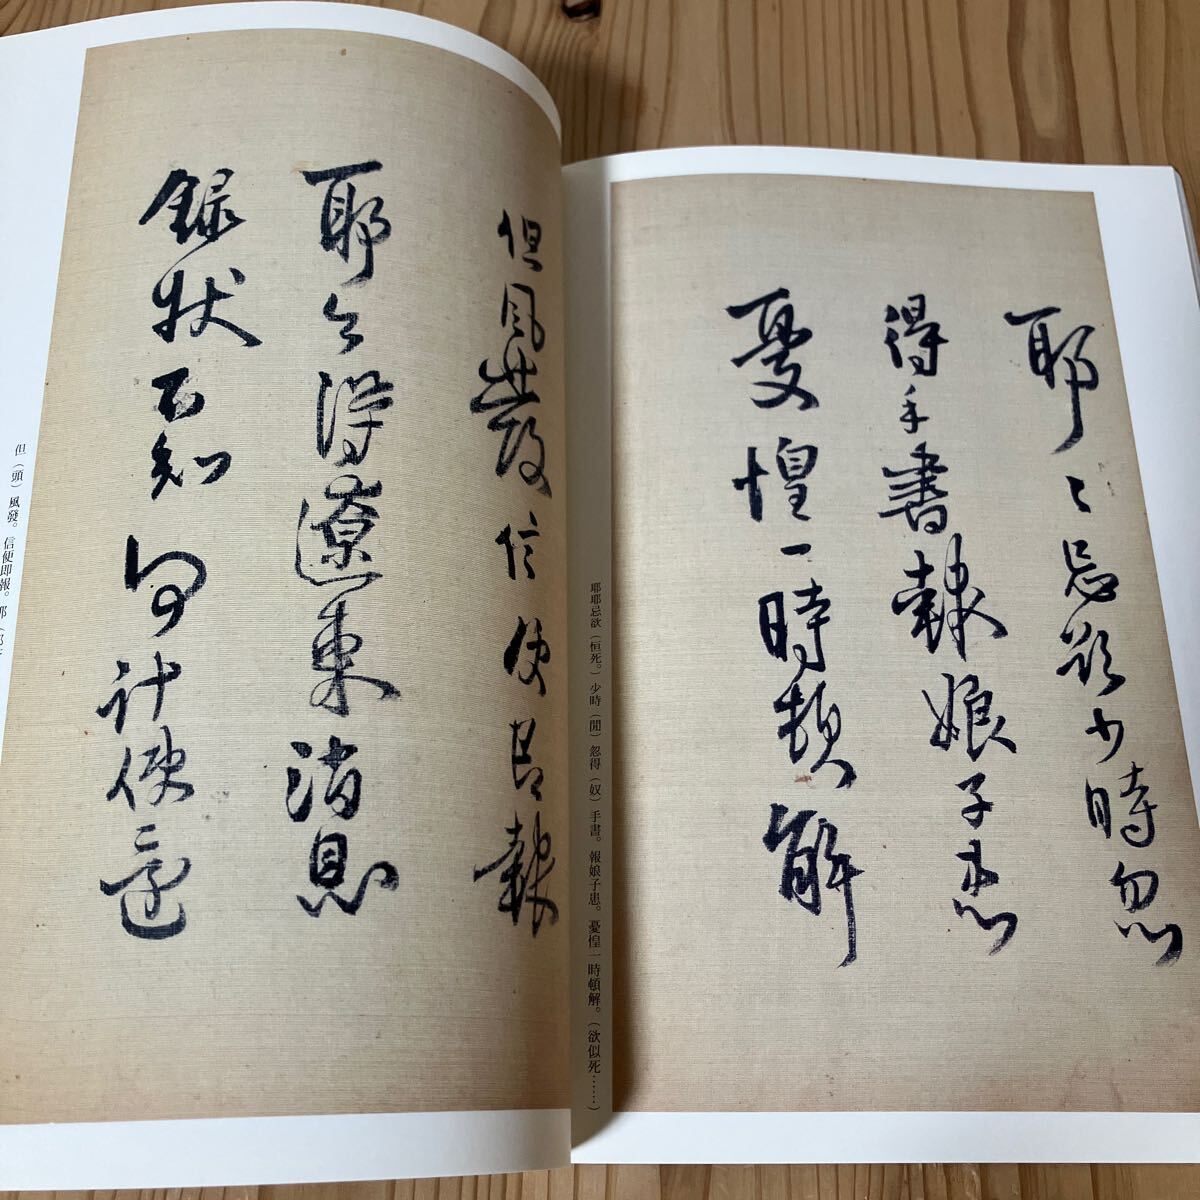 耶〻忌欲少時忽
得手書報娘子患
憂惶一時頓解
耶耶忌欲（恒死。）少時（間）忽得（奴）手書。報娘子患。憂惶一時頓解。（欲似死……）
但風發信便即報
耶今得遼東消息
錄狀不知何計使還
但（頭）風發。信便即報。耶（